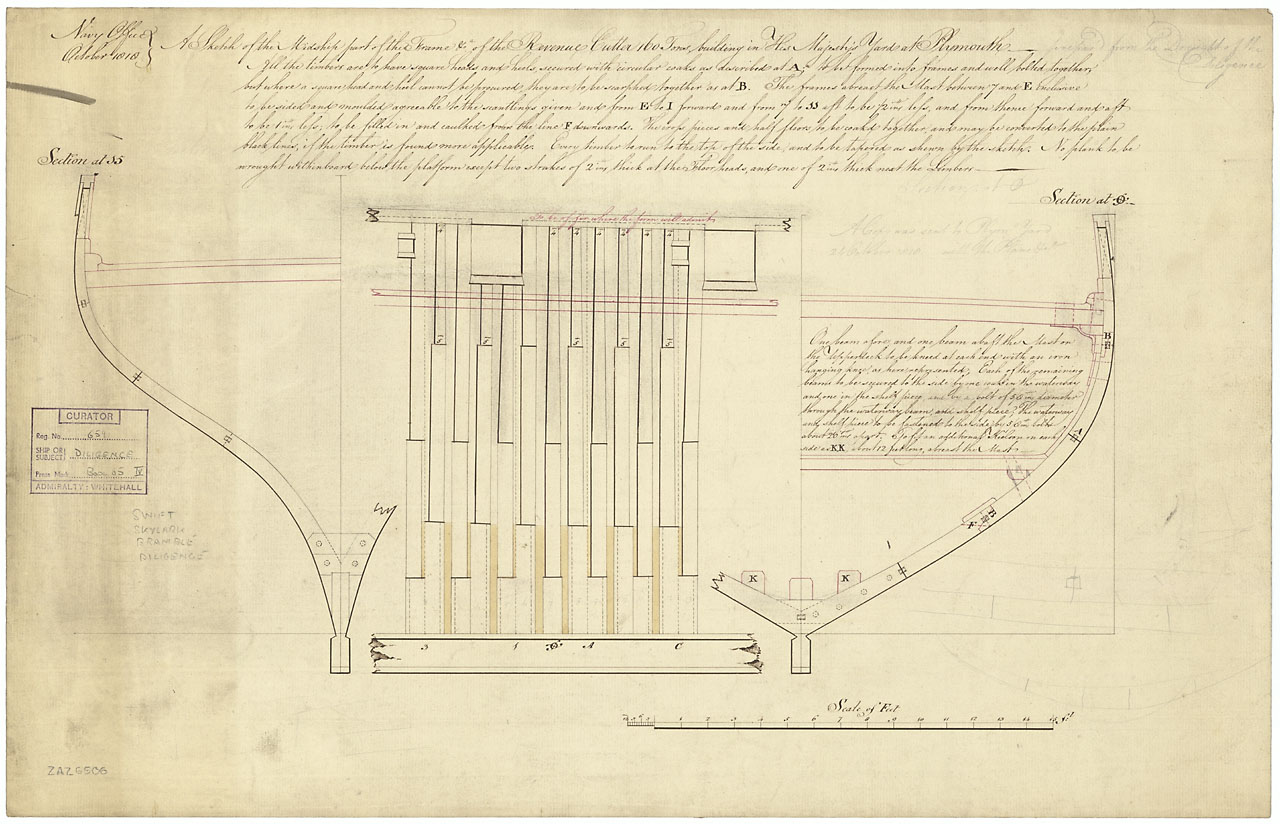 Navy Office
October 1818
A Sketch of the Midship part of the Frame &c of the Revenue Cutter 160 Tons, building in His Majesty's Yard at Plymouth
All the timbers are to have square heads and heels, secured with circular coaks as described at A, to be formed into frames and well bolted together,
but where a square head and heel cannot be procured they are to be scarphed together as at B. The frames abreast the Mast between 7 and E inclusive
to be sided and moulded agreeable to the scantlings given and from E to I forward and from 7 to 33 aft to be 1/2 ins less, and from thence forward and aft
to be 1 ins less, to be filled in and caulked from the line F downwards. The cross pieces and half floors to be coak'd together, and may be converted to the plain
black lines, if the timber is found more applicable. Every timber to run to the top of the side, and to be tapered as shewn by the sketch. No plank to be
wrought withinboard below the platform except two strakes of 2 ins thick at the Floor heads, and one of 2 ins thick near the Limbers
Section at 35
Section at
to be of fir where the form will admit
A Copy was sent to Plym Yard
One beam afore, and one beam abaft the Mast on
the Upperdeck to be kneed at each end with an iron
hanging knee, as here represented; Each of the remaining
beams to be secured to the side by one coak in the waterway
and one in the shelf piece, and by a bolt of 5/8 in diameter
through the waterway, beam, and shelf piece; The waterway
and shelf piece to be fastened to the side by 5/8 in bolts
about 26 ins apart, & to fix an additional Keelson on each
side as KK about 12 feet long, abreast the Mast
B
A
F
B
K
K
CURATOR
Reg. No. 651
SHIP OR SUBJECT DILIGENCE
Press Mark Box 05 IV
ADMIRALTY: WHITEHALL
SWIFT
SKYLARK
BRAMBLE
DILIGENCE
3 1 A C
Scale of Feet
1 2 3 4 5 6 7 8 9 10 11 12 13 14 15 ft
ZAZ6506